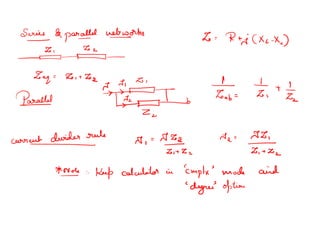 Series & parallel networks
Z = R + j (XL - Xc)
Z1 Z2
Zeq = Z1 + Z2
Parallel
A A1 Z1
A2
Z2
b
1/Zab = 1/Z1 + 1/Z2
current divider rule
A1 = AZ2/Z1+Z2
A2 = AZ1/Z1+Z2
*Note : Keep calculator in 'cmplx' mode and
'degree' option